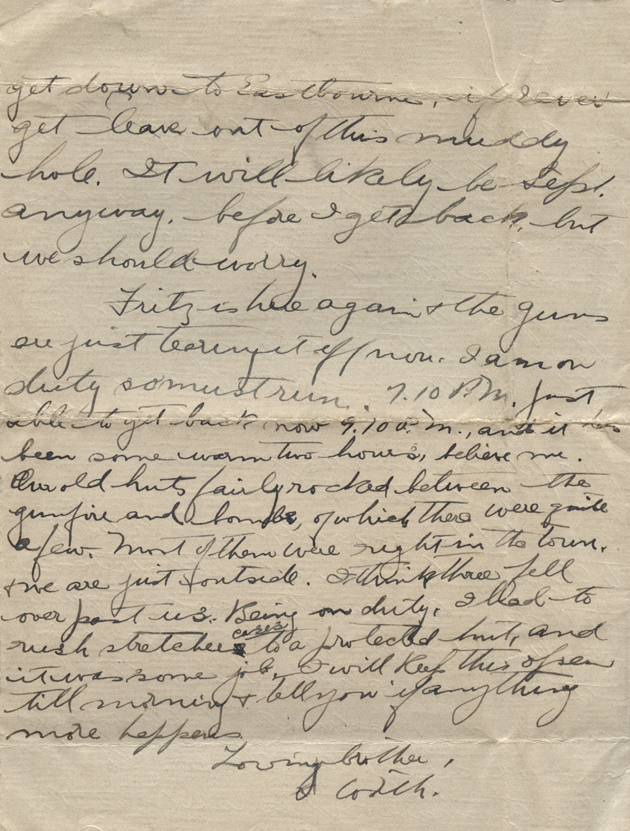 get down to Eastbourne, if I ever
get leave out of this muddy
hole. It will likely be Sept.
anyway, before I get back, but
we should worry.
Fritz is here again & the guns
are just tearing it off now. I am on
duty so must run. 7.10 P.M. Just
able to get back now 9.10 P.M., and it has
been some warm two hours, believe me.
Our old huts fairly rocked between the
gunfire and bombs, of which there were quite
a few. Most of them were right in the town,
& we are just outside. I think three fell
over past us. Being on duty, I had to
rush stretcher cases to a protected hut, and
it was some job. I will keep this open
till morning & tell you if anything
more happens
Loving brother,